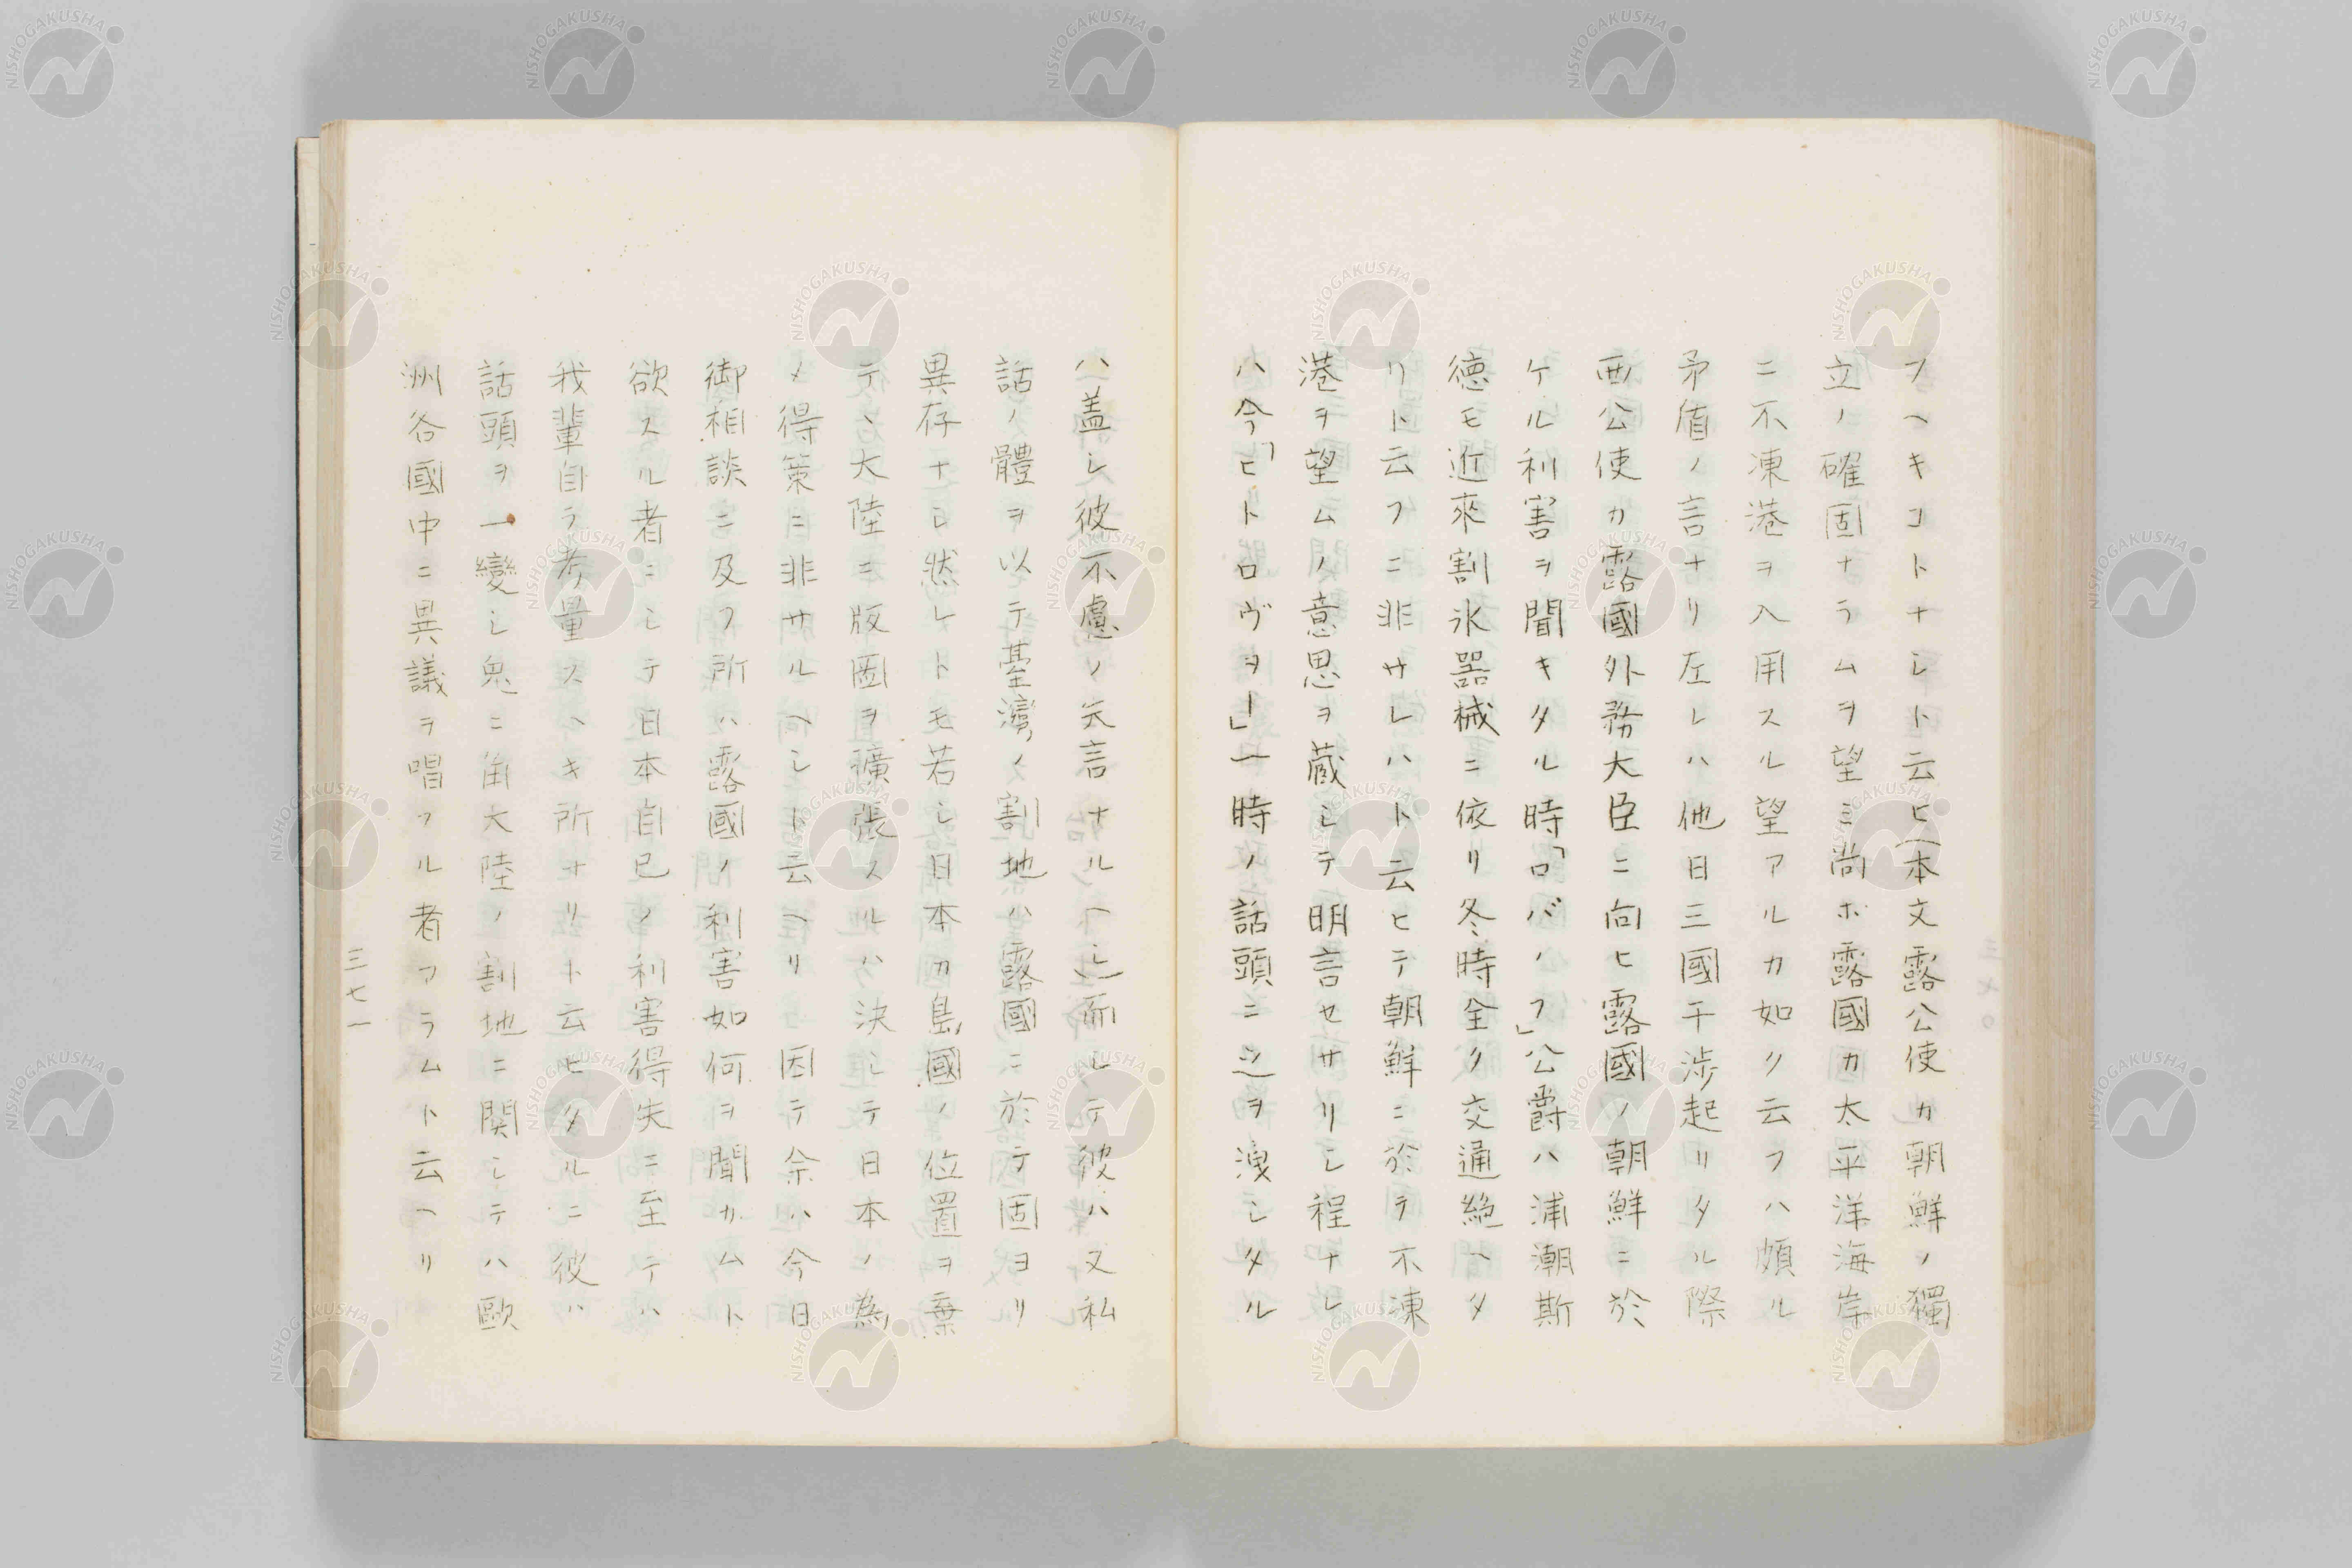 フヘキコトナシト云ヒ(本文露公使カ朝鮮ノ獨
立ノ確固ナラムヲ望ミ尚ホ露國カ太平洋海岸
ニ不凍港ヲ入用スル望アルカ如ク云フハ頗ル
矛盾ノ言ナリ左レハ他日三國干渉起リタル際
西公使カ露國外務大臣ニ向ヒ露國ノ朝鮮ニ於
ケル利害ヲ聞キタル時「ロバノフ」公爵ハ浦潮斯
徳モ近來割氷器械ニ依リ冬時全ク交通絶ヘタ
リト云フニ非サレハト云ヒテ朝鮮ニ於テ不凍
港ヲ望ムノ意思ヲ蔵シテ明言セサリシ程ナレ
ハ今「ヒトロヴヲー」一時ノ話頭ニ之ヲ洩シタル
ハ盖シ彼不慮ノ失言ナルヘシ)而シテ彼ハ又私
話ノ體ヲ以テ臺灣ノ割地ハ露國ニ於テ固ヨリ
異存ナシ然レトモ若シ日本カ島國ノ位置ヲ棄
テヽ大陸ニ版圖ヲ擴張スルハ決シテ日本ノ為
ノ得策ニ非サルヘシト云ヘリ 因テ余ハ今日
御相談ニ及フ所ハ露國ノ利害如何ヲ聞カムト
欲スル者ニシテ日本自己ノ利害得失ニ至テハ
我輩自ラ考量スヘキ所ナリト云ヒタルニ彼ハ
話頭ヲ一變シ兎ニ角大陸ノ割地ニ関シテハ歐
洲各國中ニ異議ヲ唱フル者アラムト云ヘリ
三七一
NISHOGAKUSHA